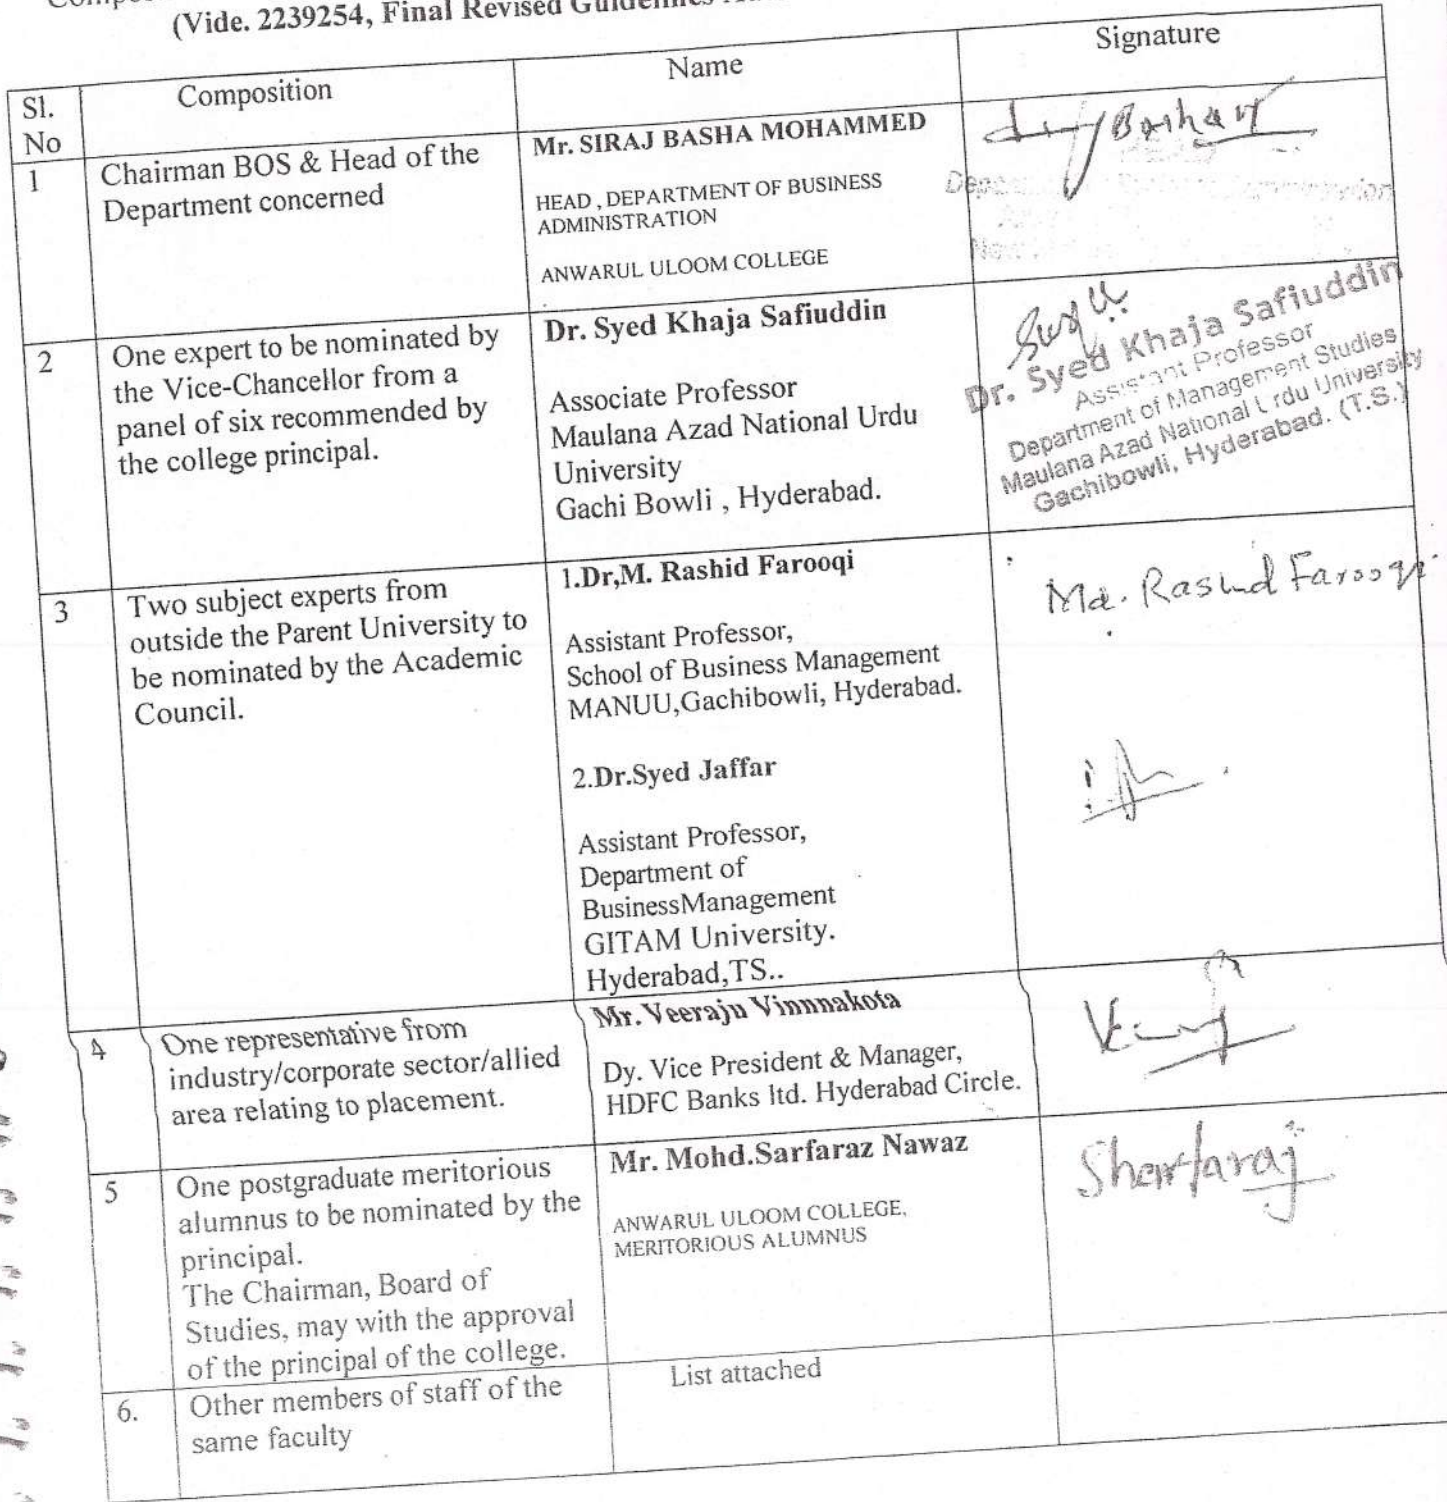 (Vide. 2239254, Final Revised Guidelines
Sl. No
Composition
Name
Signature
1
Chairman BOS & Head of the
Department concerned
Mr. SIRAJ BASHA MOHAMMED
HEAD , DEPARTMENT OF BUSINESS
ADMINISTRATION
ANWARUL ULOOM COLLEGE
Basha
2
One expert to be nominated by
the Vice-Chancellor from a
panel of six recommended by
the college principal.
Dr. Syed Khaja Safiuddin
Associate Professor
Maulana Azad National Urdu
University
Gachi Bowli , Hyderabad.
Dr. Syed Khaja Safiuddin
Assistant Professor
Department of Management Studies
Maulana Azad National Urdu University
Gachibowli, Hyderabad. (T.S.)
3
Two subject experts from
outside the Parent University to
be nominated by the Academic
Council.
1.Dr,M. Rashid Farooqi
Assistant Professor,
School of Business Management
MANUU,Gachibowli, Hyderabad.
Md. Rashid Farooqi
2.Dr.Syed Jaffar
Assistant Professor,
Department of
BusinessManagement
GITAM University.
Hyderabad,TS..
4
One representative from
industry/corporate sector/allied
area relating to placement.
Mr. Veeraju Vinnnakota
Dy. Vice President & Manager,
HDFC Banks ltd. Hyderabad Circle.
5
One postgraduate meritorious
alumnus to be nominated by the
principal.
The Chairman, Board of
Studies, may with the approval
of the principal of the college.
Mr. Mohd.Sarfaraz Nawaz
ANWARUL ULOOM COLLEGE,
MERITORIOUS ALUMNUS
6.
Other members of staff of the
same faculty
List attached